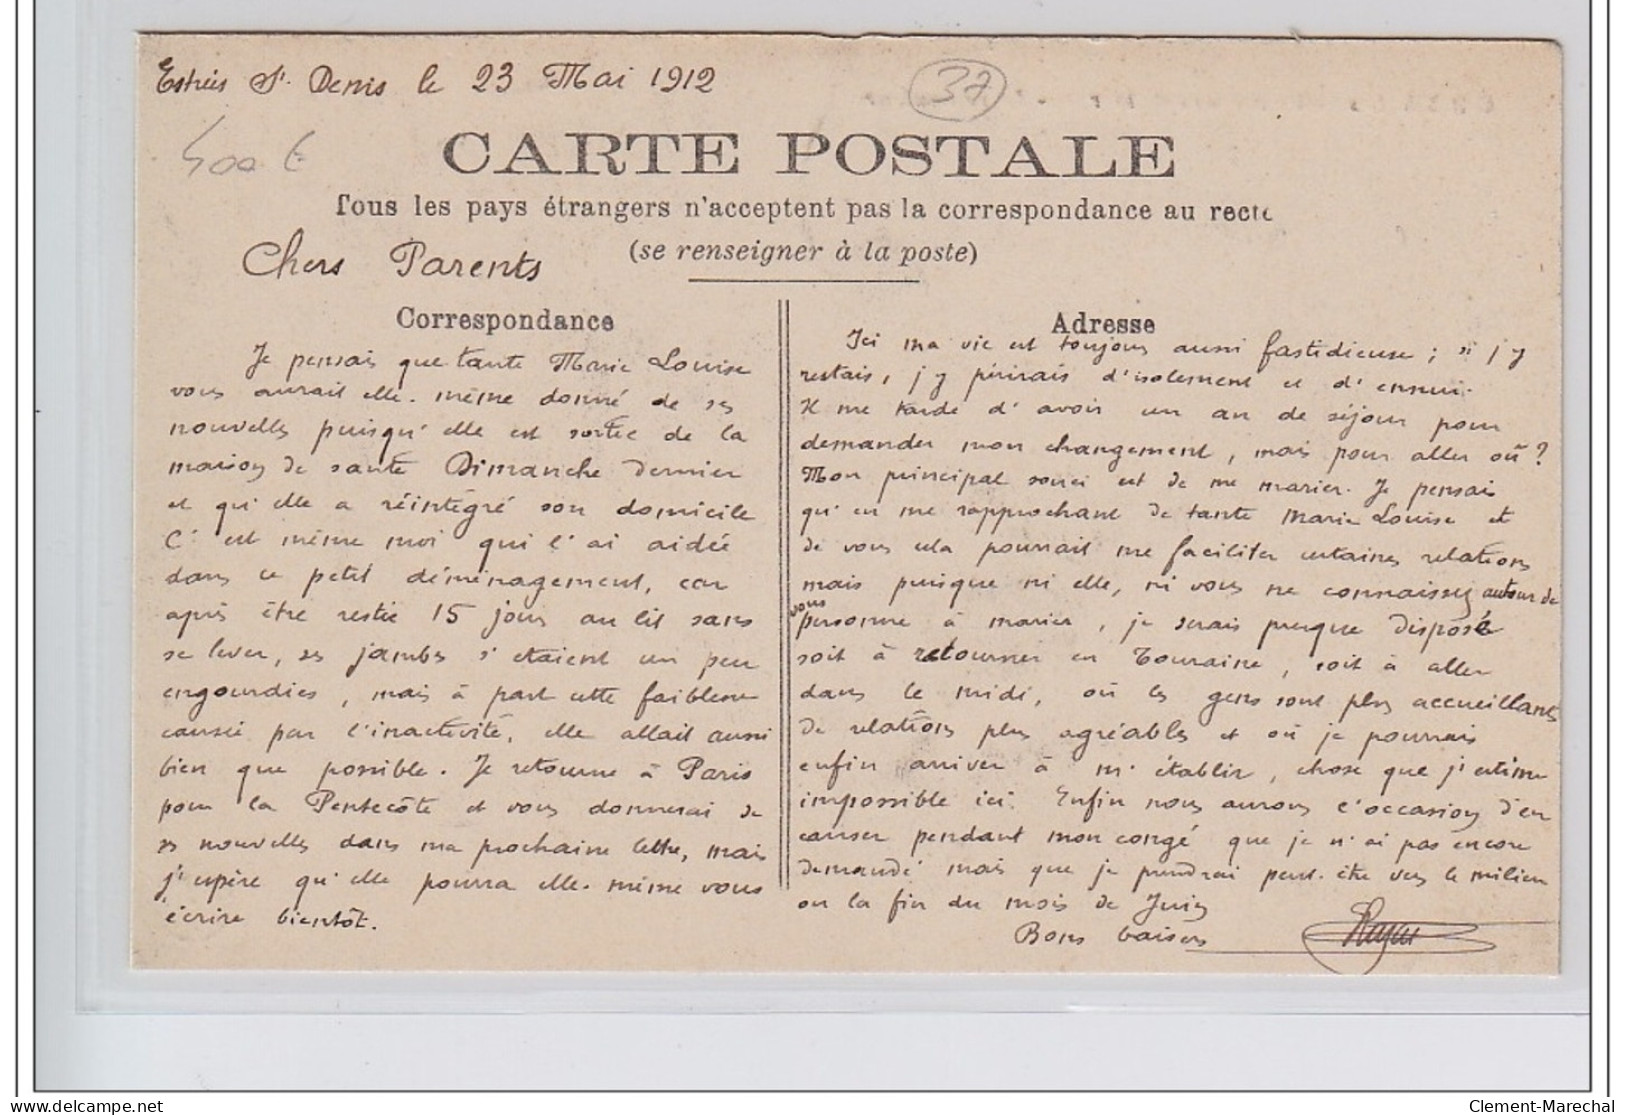 Estrées St. Denis le 23 Mai 1912
37
400 €
CARTE POSTALE
Tous les pays étrangers n'acceptent pas la correspondance au recto
(se renseigner à la poste)
Chers Parents
Correspondance
Je pensais que tante Marie Louise
vous aurait elle-même donné de ses
nouvelles puisqu'elle est sortie de la
maison de santé Dimanche dernier
et qu'elle a réintégré son domicile
C'est même moi qui l'ai aidée
dans ce petit déménagement, car
après être restée 15 jours au lit sans
se lever, ses jambes s'étaient un peu
engourdies, mais à part cette faiblesse
causée par l'inactivité, elle allait aussi
bien que possible. Je retourne à Paris
pour la Pentecôte et vous donnerai de
ses nouvelles dans ma prochaine lettre, mais
j'espère qu'elle pourra elle-même vous
écrire bientôt.
Adresse
Ici ma vie est toujours aussi fastidieuse ; si j'y
restais, j'y périrais d'isolement et d'ennui.
Il me tarde d'avoir un an de séjour pour
demander mon changement, mais pour aller où ?
Mon principal souci est de me marier. Je pensais
qu'en me rapprochant de tante Marie Louise et
de vous cela pourrait me faciliter certaines relations
mais puisque ni elle, ni vous ne connaissez autour de
vous
personne à marier, je serais presque disposé
soit à retourner en Touraine, soit à aller
dans le midi, où les gens sont plus accueillants
de relations plus agréables et où je pourrais
enfin arriver à m'établir, chose que j'estime
impossible ici. Enfin nous aurons l'occasion d'en
causer pendant mon congé que je n'ai pas encore
demandé mais que je prendrai peut-être vers le milieu
ou la fin du mois de Juin
Bons baisers
Clement-Marechal
www.delcampe.net